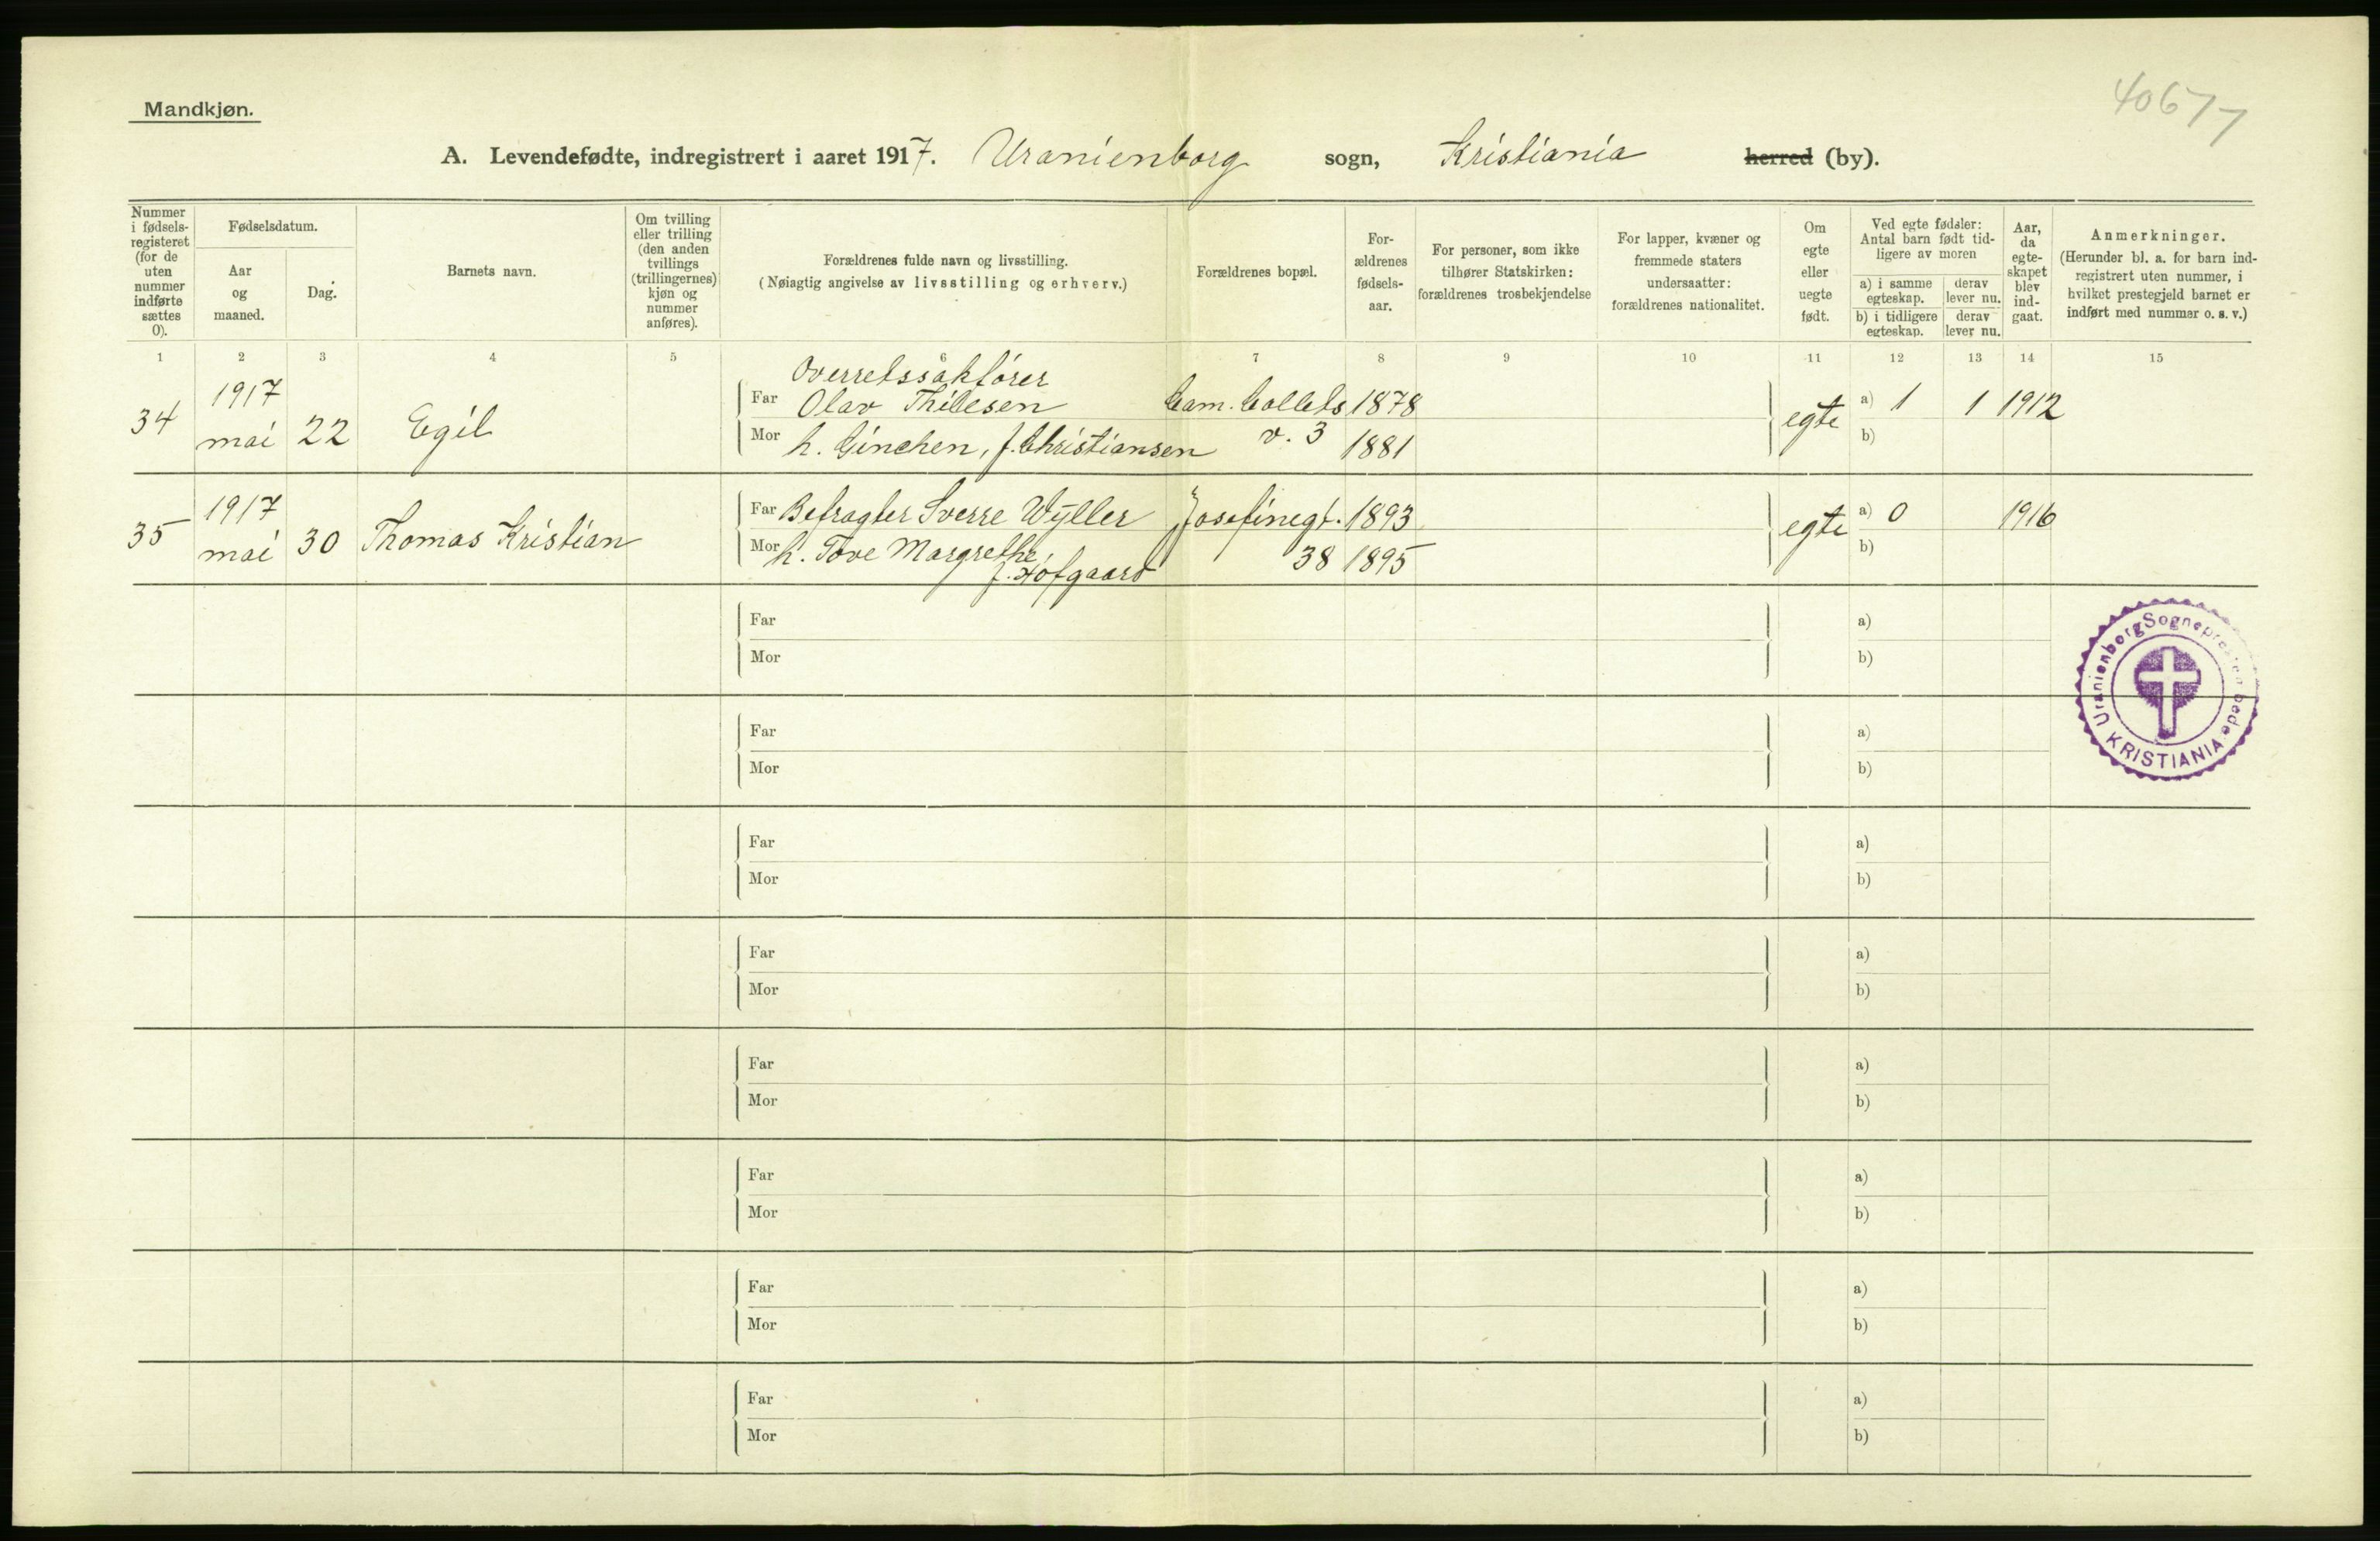 Mandkjøn.
40677
A. Levendefødte, indregistrert i aaret 1917. Uranienborg sogn, Kristiania herred (by).
Nummer i fødsels-registeret (for de uten nummer indførte sættes 0).
Fødselsdatum.
Aar og maaned.
Dag.
Barnets navn.
Om tvilling eller trilling (den anden tvillings (trillingernes) kjøn og nummer anføres).
Forældrenes fulde navn og livsstilling.
(Nøiagtig angivelse av livsstilling og erhverv.)
Forældrenes bopæl.
For-ældrenes fødsels-aar.
For personer, som ikke tilhører Statskirken: forældrenes trosbekjendelse
For lapper, kvæner og fremmede staters undersaatter: forældrenes nationalitet.
Om egte eller uegte født.
Ved egte fødsler: Antal barn født tid-ligere av moren
a) i samme egteskap.
derav lever nu.
b) i tidligere egteskap.
derav lever nu.
Aar, da egte-skapet blev ind-gaat.
Anmerkninger.
(Herunder bl. a. for barn ind-registrert uten nummer, i hvilket prestegjeld barnet er indført med nummer o. s. v.)
1 2 3 4 5 6 7 8 9 10 11 12 13 14 15
Overretssakfører
34 1917 mai 22 Egil
Far Olav Thilesen Cam. Colletts 1878
Mor h. Ginchen, f. Christiansen v. 3 1881
egte a) 1 1 1912
b)
35 1917 mai 30 Thomas Kristian
Far Befragter Sverre Wyller Josefinegt. 1893
Mor h. Tove Margrethe, 38 1895
f. Hofgaard
egte a) 0 1916
b)
Far a)
Mor b)
Uranienborg Sogneprestembede
KRISTIANIA
Far a)
Mor b)
Far a)
Mor b)
Far a)
Mor b)
Far a)
Mor b)
Far a)
Mor b)
Far a)
Mor b)
Far a)
Mor b)